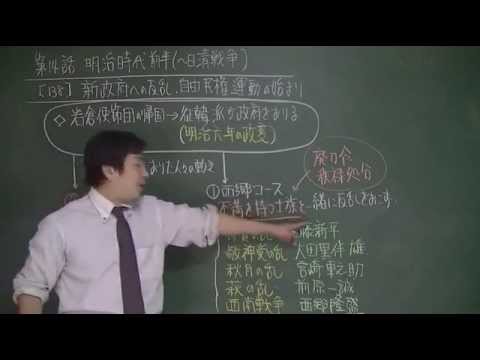 第14話 明治時代前半(~日清戦争)
[138] 新政府への反乱、自由民権運動の始まり
◇岩倉使節団の帰国→征韓派が政府をおりる
(明治六年の政変)
おりた人々の動き
①西郷コース
廃刀令
秩禄処分
不満を持つ士族と一緒に反乱をおこす。
の乱 藤新平
敬神党の乱 太田黒伴雄
秋月の乱 宮崎車之助
萩の乱 前原一誠
西南戦争 西郷隆盛